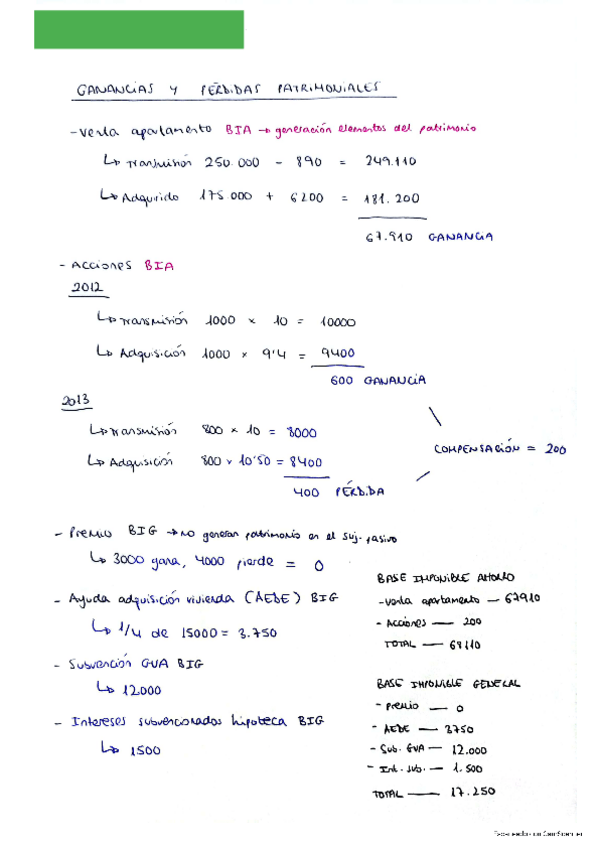 GANANCIAS Y PÉRDIDAS PATRIMONIALES
- Venta apartamento BIA → generación elementos del patrimonio
↳ Transmisión 250.000 - 890 = 249.110
↳ Adquirido 175.000 + 6200 = 181.200
67.910 GANANCIA
- Acciones BIA
2012
↳ Transmisión 1000 × 10 = 10000
↳ Adquisición 1000 × 9'4 = 9400
600 GANANCIA
2013
↳ Transmisión 800 × 10 = 8000
↳ Adquisición 800 × 10'50 = 8400
400 PÉRDIDA
COMPENSACIÓN = 200
- Premio BIG → no generan patrimonio en el suj. pasivo
↳ 3000 gana, 4000 pierde = 0
- Ayuda adquisición vivienda (AEDE) BIG
↳ 1/4 de 15000 = 3.750
- Subvención GVA BIG
↳ 12.000
- Intereses subvencionados hipoteca BIG
↳ 1500
BASE IMPONIBLE AHORRO
- Venta apartamento — 67910
- Acciones — 200
TOTAL — 68110
BASE IMPONIBLE GENERAL
- Premio — 0
- AEDE — 3750
- Sub. GVA — 12.000
- Int. sub. — 1.500
TOTAL — 17.250